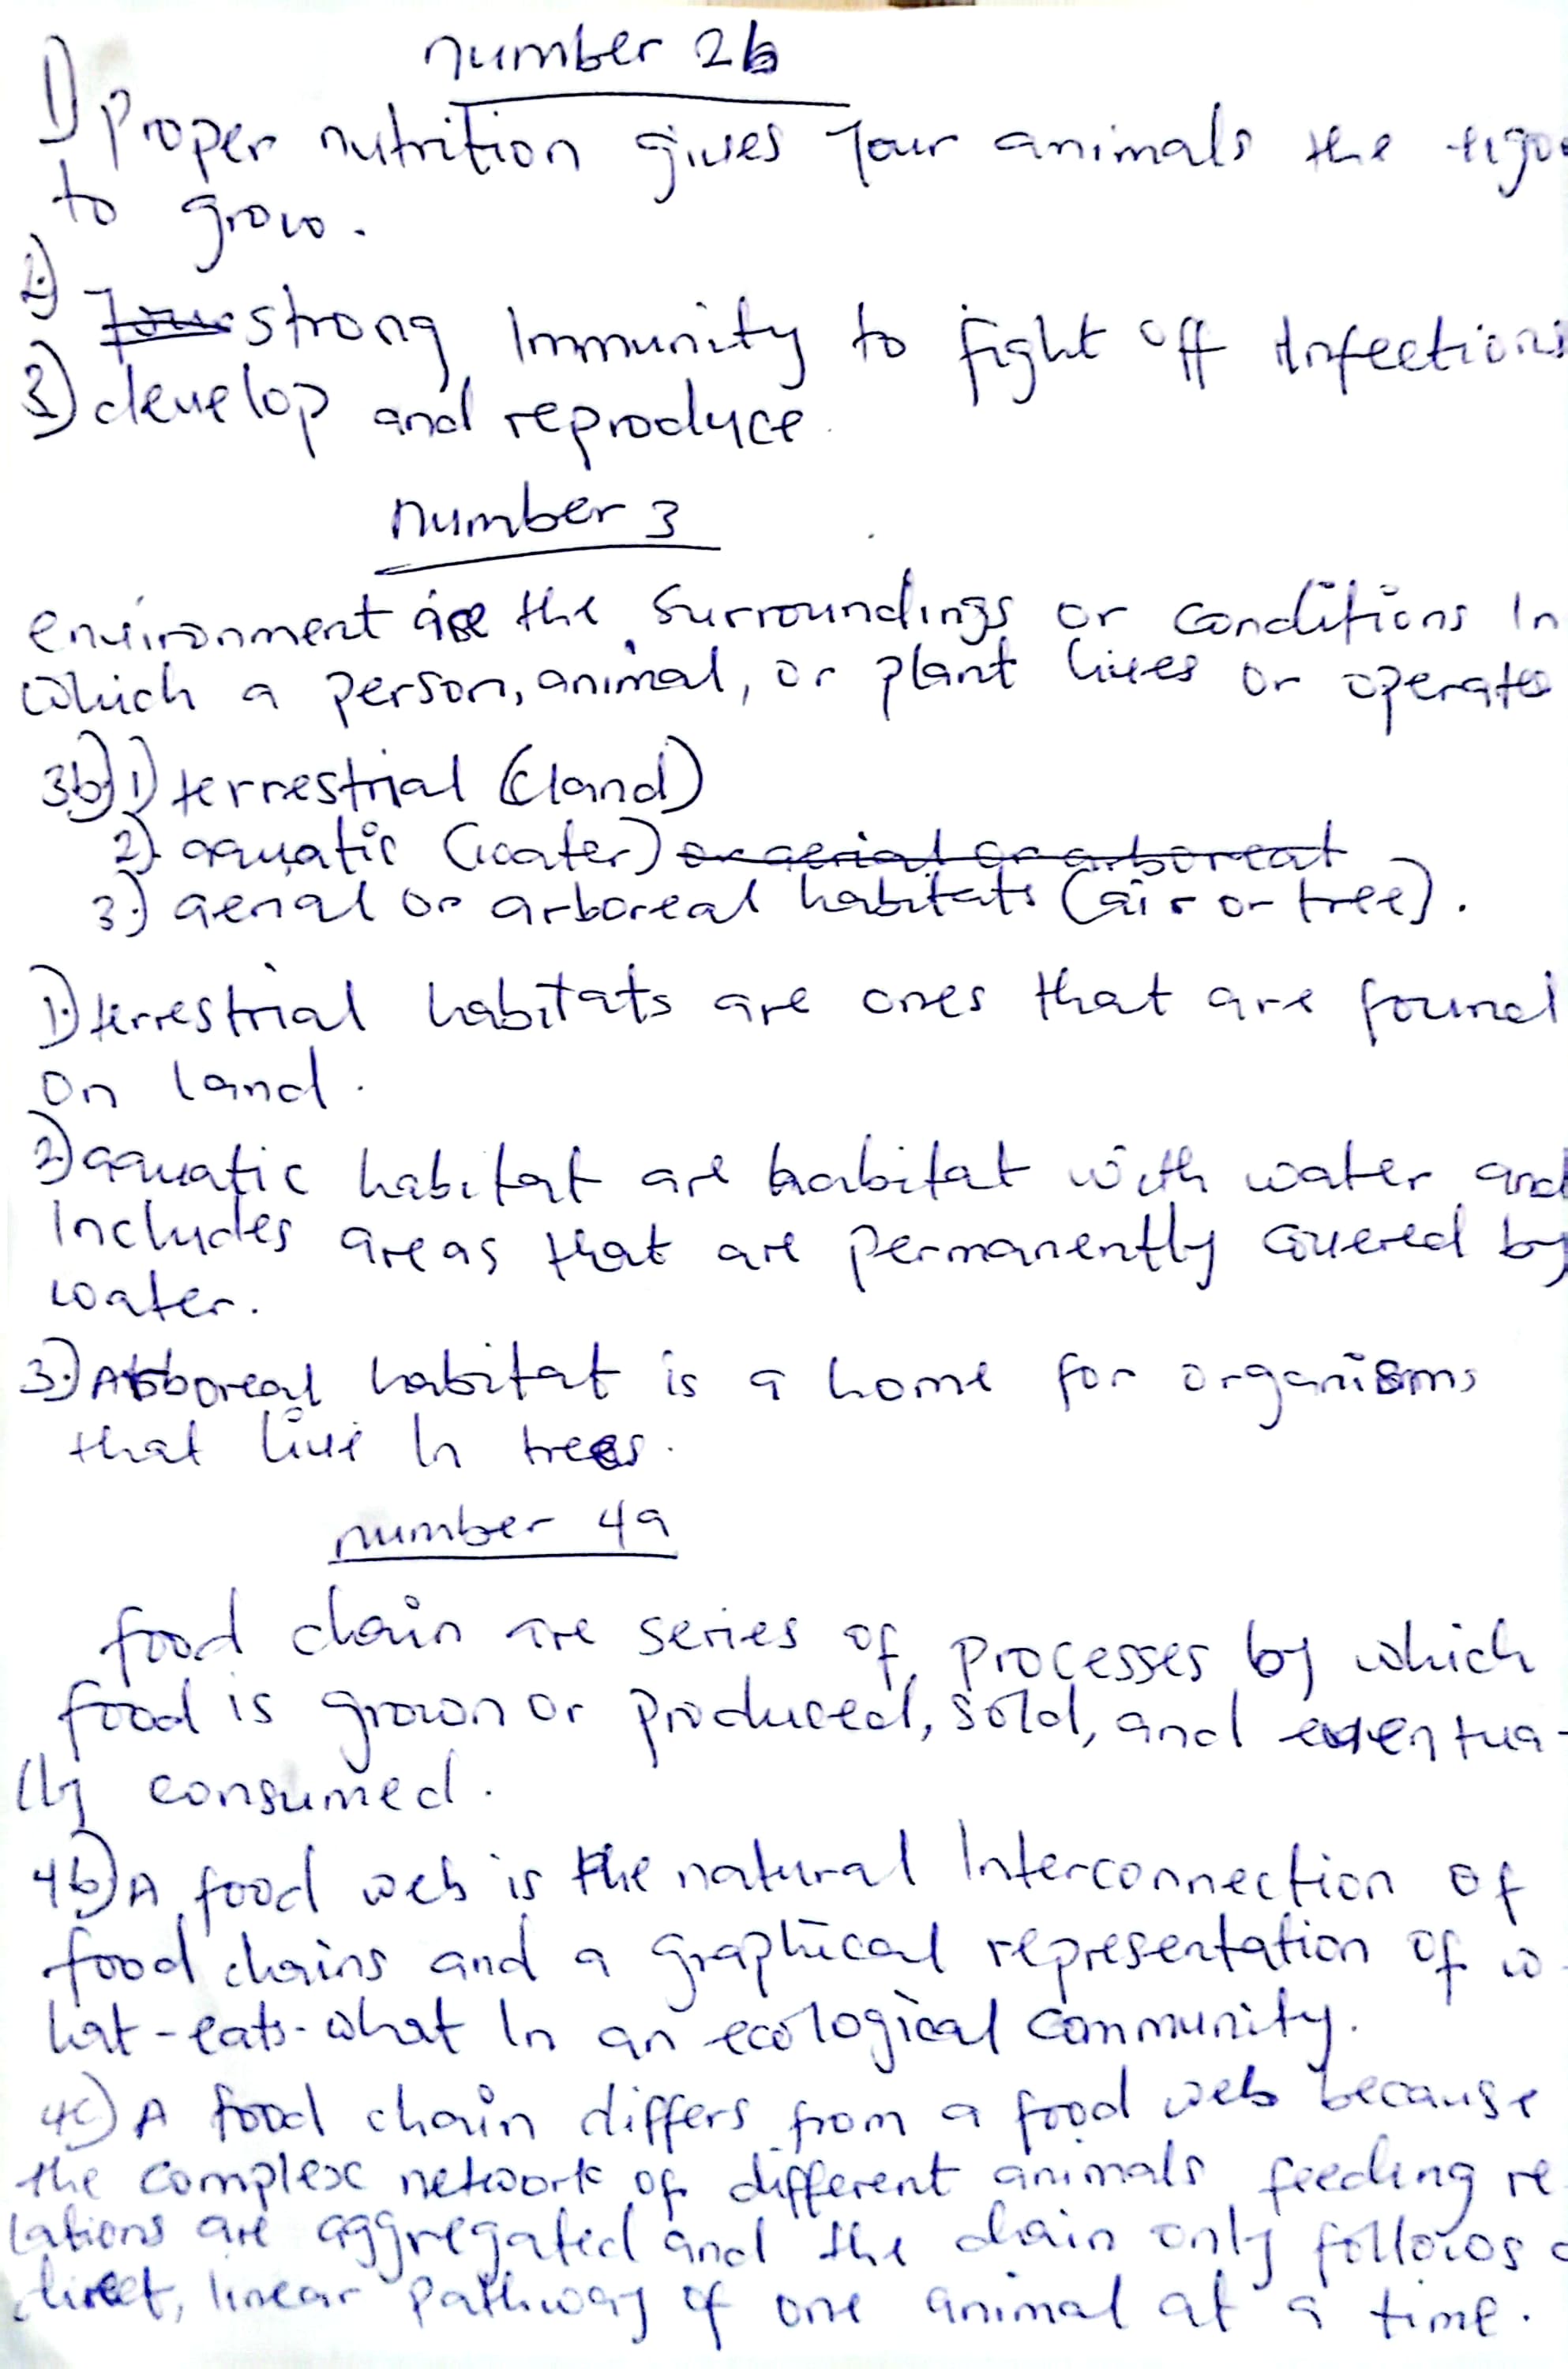 number 2b
1) Proper nutrition gives your animals the
to grow.
2) strong Immunity to fight off Infections
3) develop and reproduce.
number 3
environment are the surroundings or conditions In
which a person, animal, or plant lives or operates
3b) 1) terrestrial (land)
2) aquatic (water) or aerial or arboreat
3.) aerial or arboreal habitats (air or tree).
1) terrestrial habitats are ones that are found
On land.
2) aquatic habitat are habitat with water and
Includes areas that are permanently covered by
water.
3.) Arboreal habitat is a home for organisms
that live In trees.
number 4a
food chain are series of processes by which
food is grown or produced, sold, and eventua-
lly consumed.
4b) A food web is the natural Interconnection of
food chains and a graphical representation of w-
hat-eats-what In an ecological community.
4c) A food chain differs from a food web because
the complex network of different animals feeding re-
lations are aggregated and the chain only follows a
direct, linear pathway of one animal at a time.